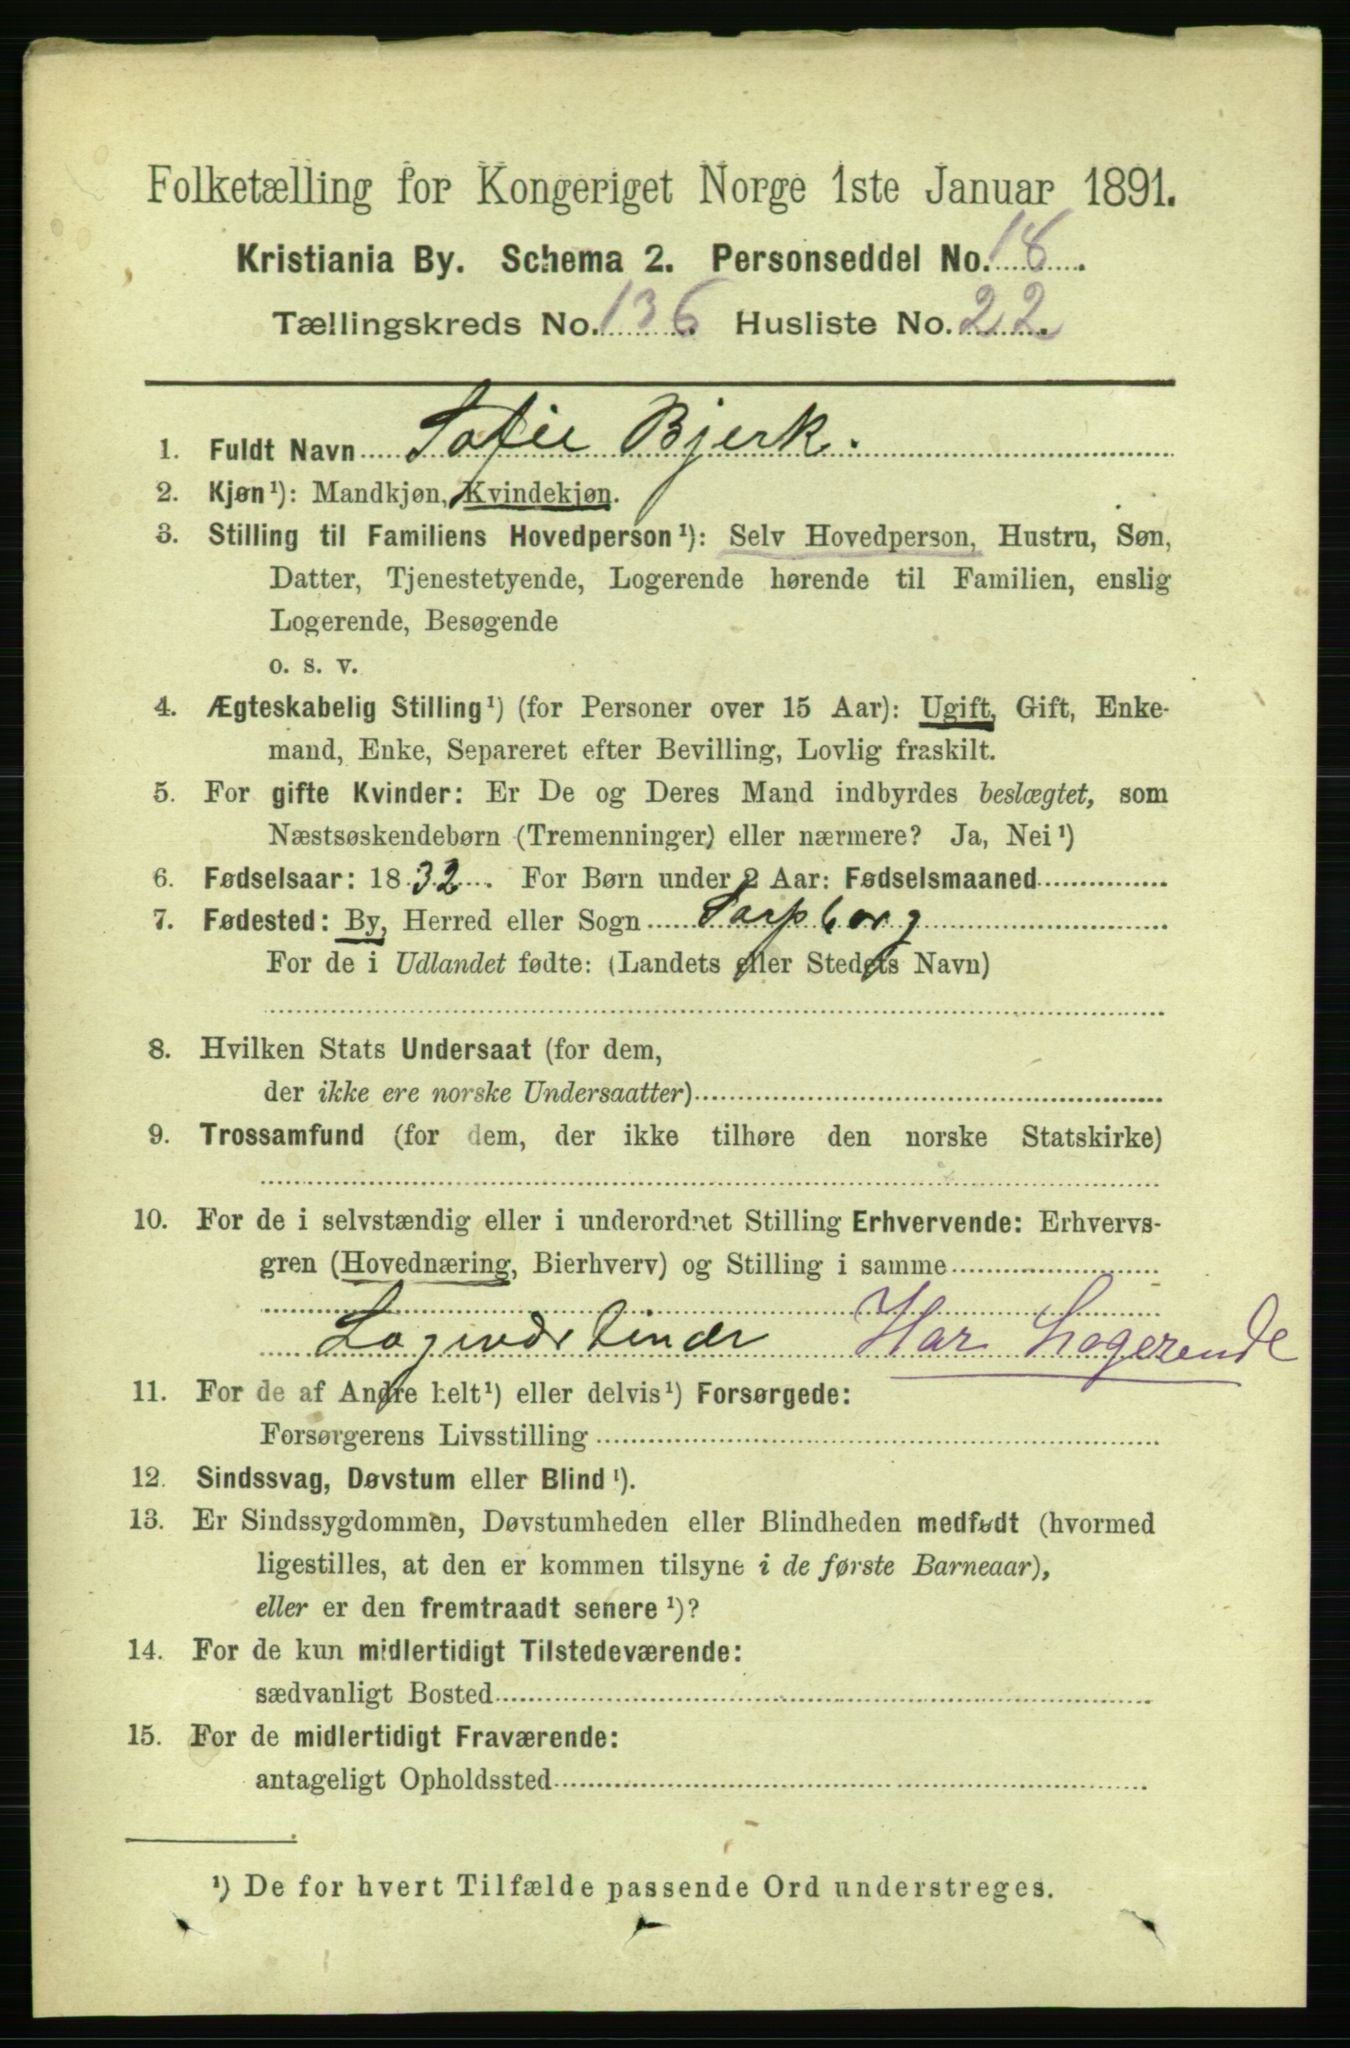 Folketælling for Kongeriget Norge 1ste Januar 1891.
Kristiania By. Schema 2. Personseddel No. 18.
Tællingskreds No. 136. Husliste No. 22.
1. Fuldt Navn Sofie Bjerk.
2. Kjøn¹): Mandkjøn, Kvindekjøn.
3. Stilling til Familiens Hovedperson¹): Selv Hovedperson, Hustru, Søn,
Datter, Tjenestetyende, Logerende hørende til Familien, enslig
Logerende, Besøgende
o. s. v.
4. Ægteskabelig Stilling¹) (for Personer over 15 Aar): Ugift, Gift, Enke-
mand, Enke, Separeret efter Bevilling, Lovlig fraskilt.
5. For gifte Kvinder: Er De og Deres Mand indbyrdes beslægtet, som
Næstsøskendebørn (Tremenninger) eller nærmere? Ja, Nei¹)
6. Fødselsaar: 1832. For Børn under 2 Aar: Fødselsmaaned
7. Fødested: By, Herred eller Sogn Sarpborg
For de i Udlandet fødte: (Landets eller Stedets Navn)
8. Hvilken Stats Undersaat (for dem,
der ikke ere norske Undersaatter)
9. Trossamfund (for dem, der ikke tilhøre den norske Statskirke)
10. For de i selvstændig eller i underordnet Stilling Erhvervende: Erhvervs-
gren (Hovednæring, Bierhverv) og Stilling i samme
Har Logerende
11. For de af Andre helt¹) eller delvis¹) Forsørgede:
Forsørgerens Livsstilling
12. Sindssvag, Døvstum eller Blind¹).
13. Er Sindssygdommen, Døvstumheden eller Blindheden medfødt (hvormed
ligestilles, at den er kommen tilsyne i de første Barneaar),
eller er den fremtraadt senere¹)?
14. For de kun midlertidigt Tilstedeværende:
sædvanligt Bosted
15. For de midlertidigt Fraværende:
antageligt Opholdssted
¹) De for hvert Tilfælde passende Ord understreges.